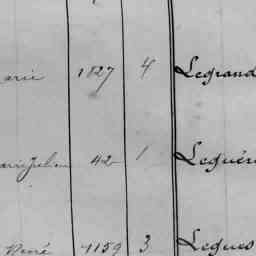 arie 1827 4 Legrand
42 1 Leguér
René 1159 3 Legues